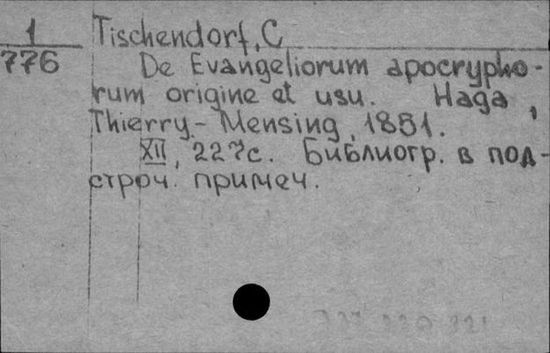 1 Tischendorf, C
776 De Evangeliorum apocrypho-
rum origine et usu. Haga,
Thierry-Mensing, 1851.
XII, 227с. Библиогр. в под-
строч. примеч.